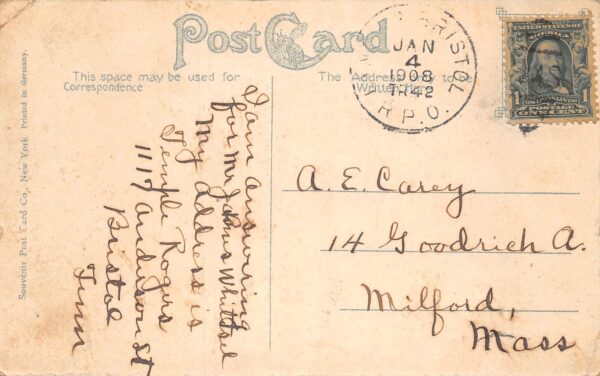 Post Card
This space may be used for
Correspondence
The Address only to be
Written Here
BRISTOL
JAN
4
1908
TR 42
R.P.O.
UNITED STATES OF
AMERICA
POSTAGE
ONE CENT
I am answering
for Mr
My address is
Temple Rogers
1117 anderson st
Bristol
Tenn
A. E. Carey
14 Goodrich A.
Milford,
Mass
Souvenir Post Card Co., New York Printed in Germany.